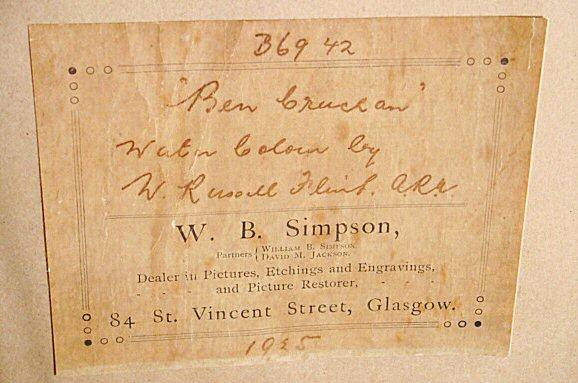 B69 42
"Ben Cruchan"
Water Colour by
W. Russell Flint. A.R.A.
W. B. Simpson,
Partners { William B. Simpson.
David M. Jackson.
Dealer in Pictures, Etchings and Engravings,
and Picture Restorer,
84 St. Vincent Street, Glasgow.
1925